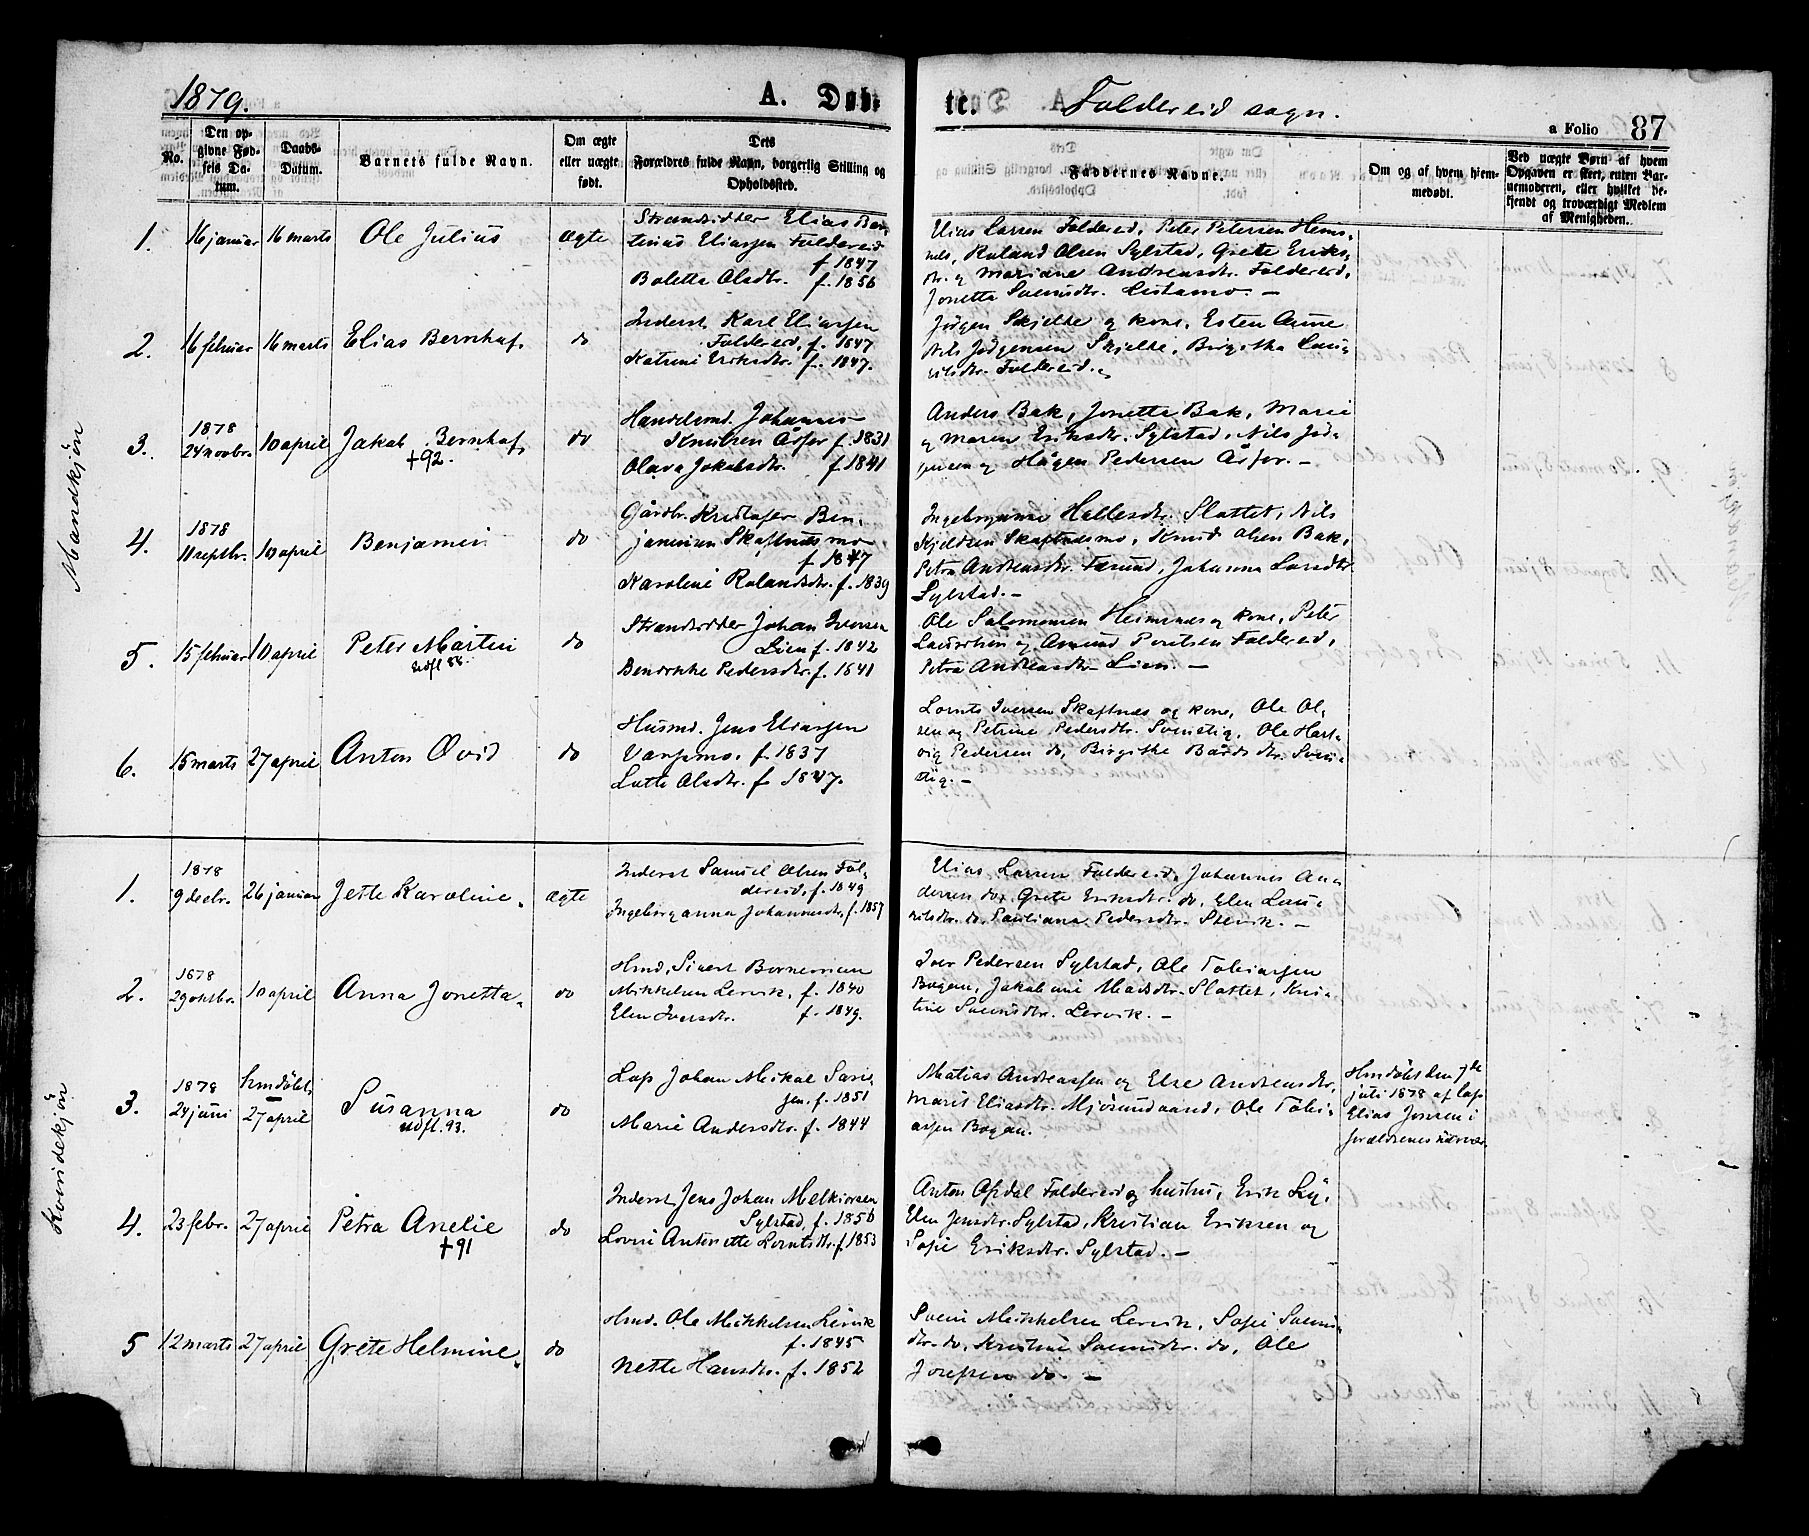 1879.
A. Døb-
te.
Foldereid sogn.
a Folio 87
No.
Den op-
givne Fød-
sels Da-
tum.
Daabs-
Datum.
Barnets fulde Navn.
Om ægte
eller uægte
født.
Dets
Forældres fulde Navn, borgerlig Stilling og
Opholdssted.
Faddernes Navne.
Om og af hvem hjem-
medøbt.
Ved uægte Børn af hvem
Opgaven er skeet, enten Bar-
nemoderen, eller hvilket be-
kjendt og troværdigt Medlem
af Menigheden.
Mandkjön
1. 16 januar 16 marts Ole Julius ægte
Strandsidder Elias Bar-
tinus Eliassen Foldereid
f 1847
Boletta Olsdtr. f. 1856
Elias Larsen Foldereid, Peter Petersen Heims-
nes, Roland Olsen Sylstad, Grete Eriks-
dtr. og Mariane Andreasdtr. Foldereid,
Jonetta Svensdtr. —
2. 16 februar 16 marts Elias Bernhof. do
Inderst. Karl Eliassen
Foldereid, f. 1847
Katrine Eriksdtr. f. 1847.
Jögen Skjelbe og kone, Esten Aune
Nils Jögensen Skjelbe, Birgitha Lau-
ritsdtr. Foldereid.
3. 1878
24 novbr. 10 april Jakob Bernhof, do
+92.
Handelsmd. Johannes
Knutsen Årfor f. 1831
Olava Jakobsdtr. f 1841
Anders Bak, Jonetta Bak, Marie
og Maren Eriksdtr. Sylstad, Nils Jør-
gensen og Hågen Pedersen Årfor. —
4. 1878
11 septbr. 10 april Benjamin do
Gårdbr. Kristofer Ben-
jaminsen Skaftnesmo
f 1847
Karoline Rolandsdtr. f. 1839
Ingeborganna Hallesdtr. Slattet, Nils
Kjeldsen Skaftnesmo, Knud Olsen Bak,
Petra Andreasdtr. , Johanna Larsdtr
Sylstad. —
5. 15 februar 10 april Peter Martin do
udfl 88.
Strandsidder Johan Iversen
Lien f. 1842
Benrikke Pedersdtr. f. 1841
Ole Salomonsen Heimsnes og kone, Peter
Lauritsen og Amund Poulsen Foldereid,
Petra Andreasdtr Lien. —
6. 15 marts 27 april Anton Ovid do
Husmd. Jens Eliassen
f. 1837
Lutte Olsdtr. f 1847.
Lornts Iversen Skaftnes og kone, Ole Ol-
sen og Petrine Pedersdtr. Svinstig, Ole Hart-
vig Pedersen do, Birgithe Bårdsdtr. Svin-
stig. —
Kvindekjön
1. 1878
9 decbr. 26 januar Jette Karoline. ægte
Inderst Samuel Olsen Fol-
dereid, f. 1849
Ingeborganna Johannesdtr. f. 1857
Elias Larsen Foldereid, Johannes An-
dersen do, Grete Eriksdtr. do, Elen Lau-
ritsdtr. do, Pauliana Pedersdtr. Stervik. —
2. 1878
29 oktbr. 10 april Anna Jonetta. do
Hmd, Sivert Bornemann
Mikkelsen Lervik, f. 1840
Elen Iversdtr. f. 1849.
Iver Pedersen Sylstad, Ole Tobiassen
Bogen, Jakobine Madsdtr. Slattet, Kris-
tine Svensdtr. Lervik. —
3. 1878
24 juni hmdöbt,
27 april Susanna do
udfl. 93.
Lap Johan Mikal
f. 1851
Marie Andersdtr. f. 1844
Matias Andreassen og Else Andreasdtr,
Marit Eliasdtr. , Ole Tobi-
assen Bogen.
Hmdöbt den 7de
juli 1878 af lap
Elias Jonsen i
forældrenes nærvær.
4. 23 febr. 27 april Petra Anelie do
+91
Inderst Jens Johan Melkiorsen
Sylstad, f. 1856
Lovise Antonette Lorntsdtr. f. 1853
Anton Opdal Foldereid og hustru, Erik ,
Elen Jensdtr. Sylstad, Kristian Eriksen og
Sofie Eriksdtr. Sylstad. —
5 12 marts 27 april Grete Helmine. do
Hmd. Ole Mikkelsen Lervik
f. 1845
Nette Hansdtr. f. 1852
Sven Mikkelsen Lervik, Sofie Svens-
dtr. do, Kristine Svensdtr. do, Ole
Josefsen do. —